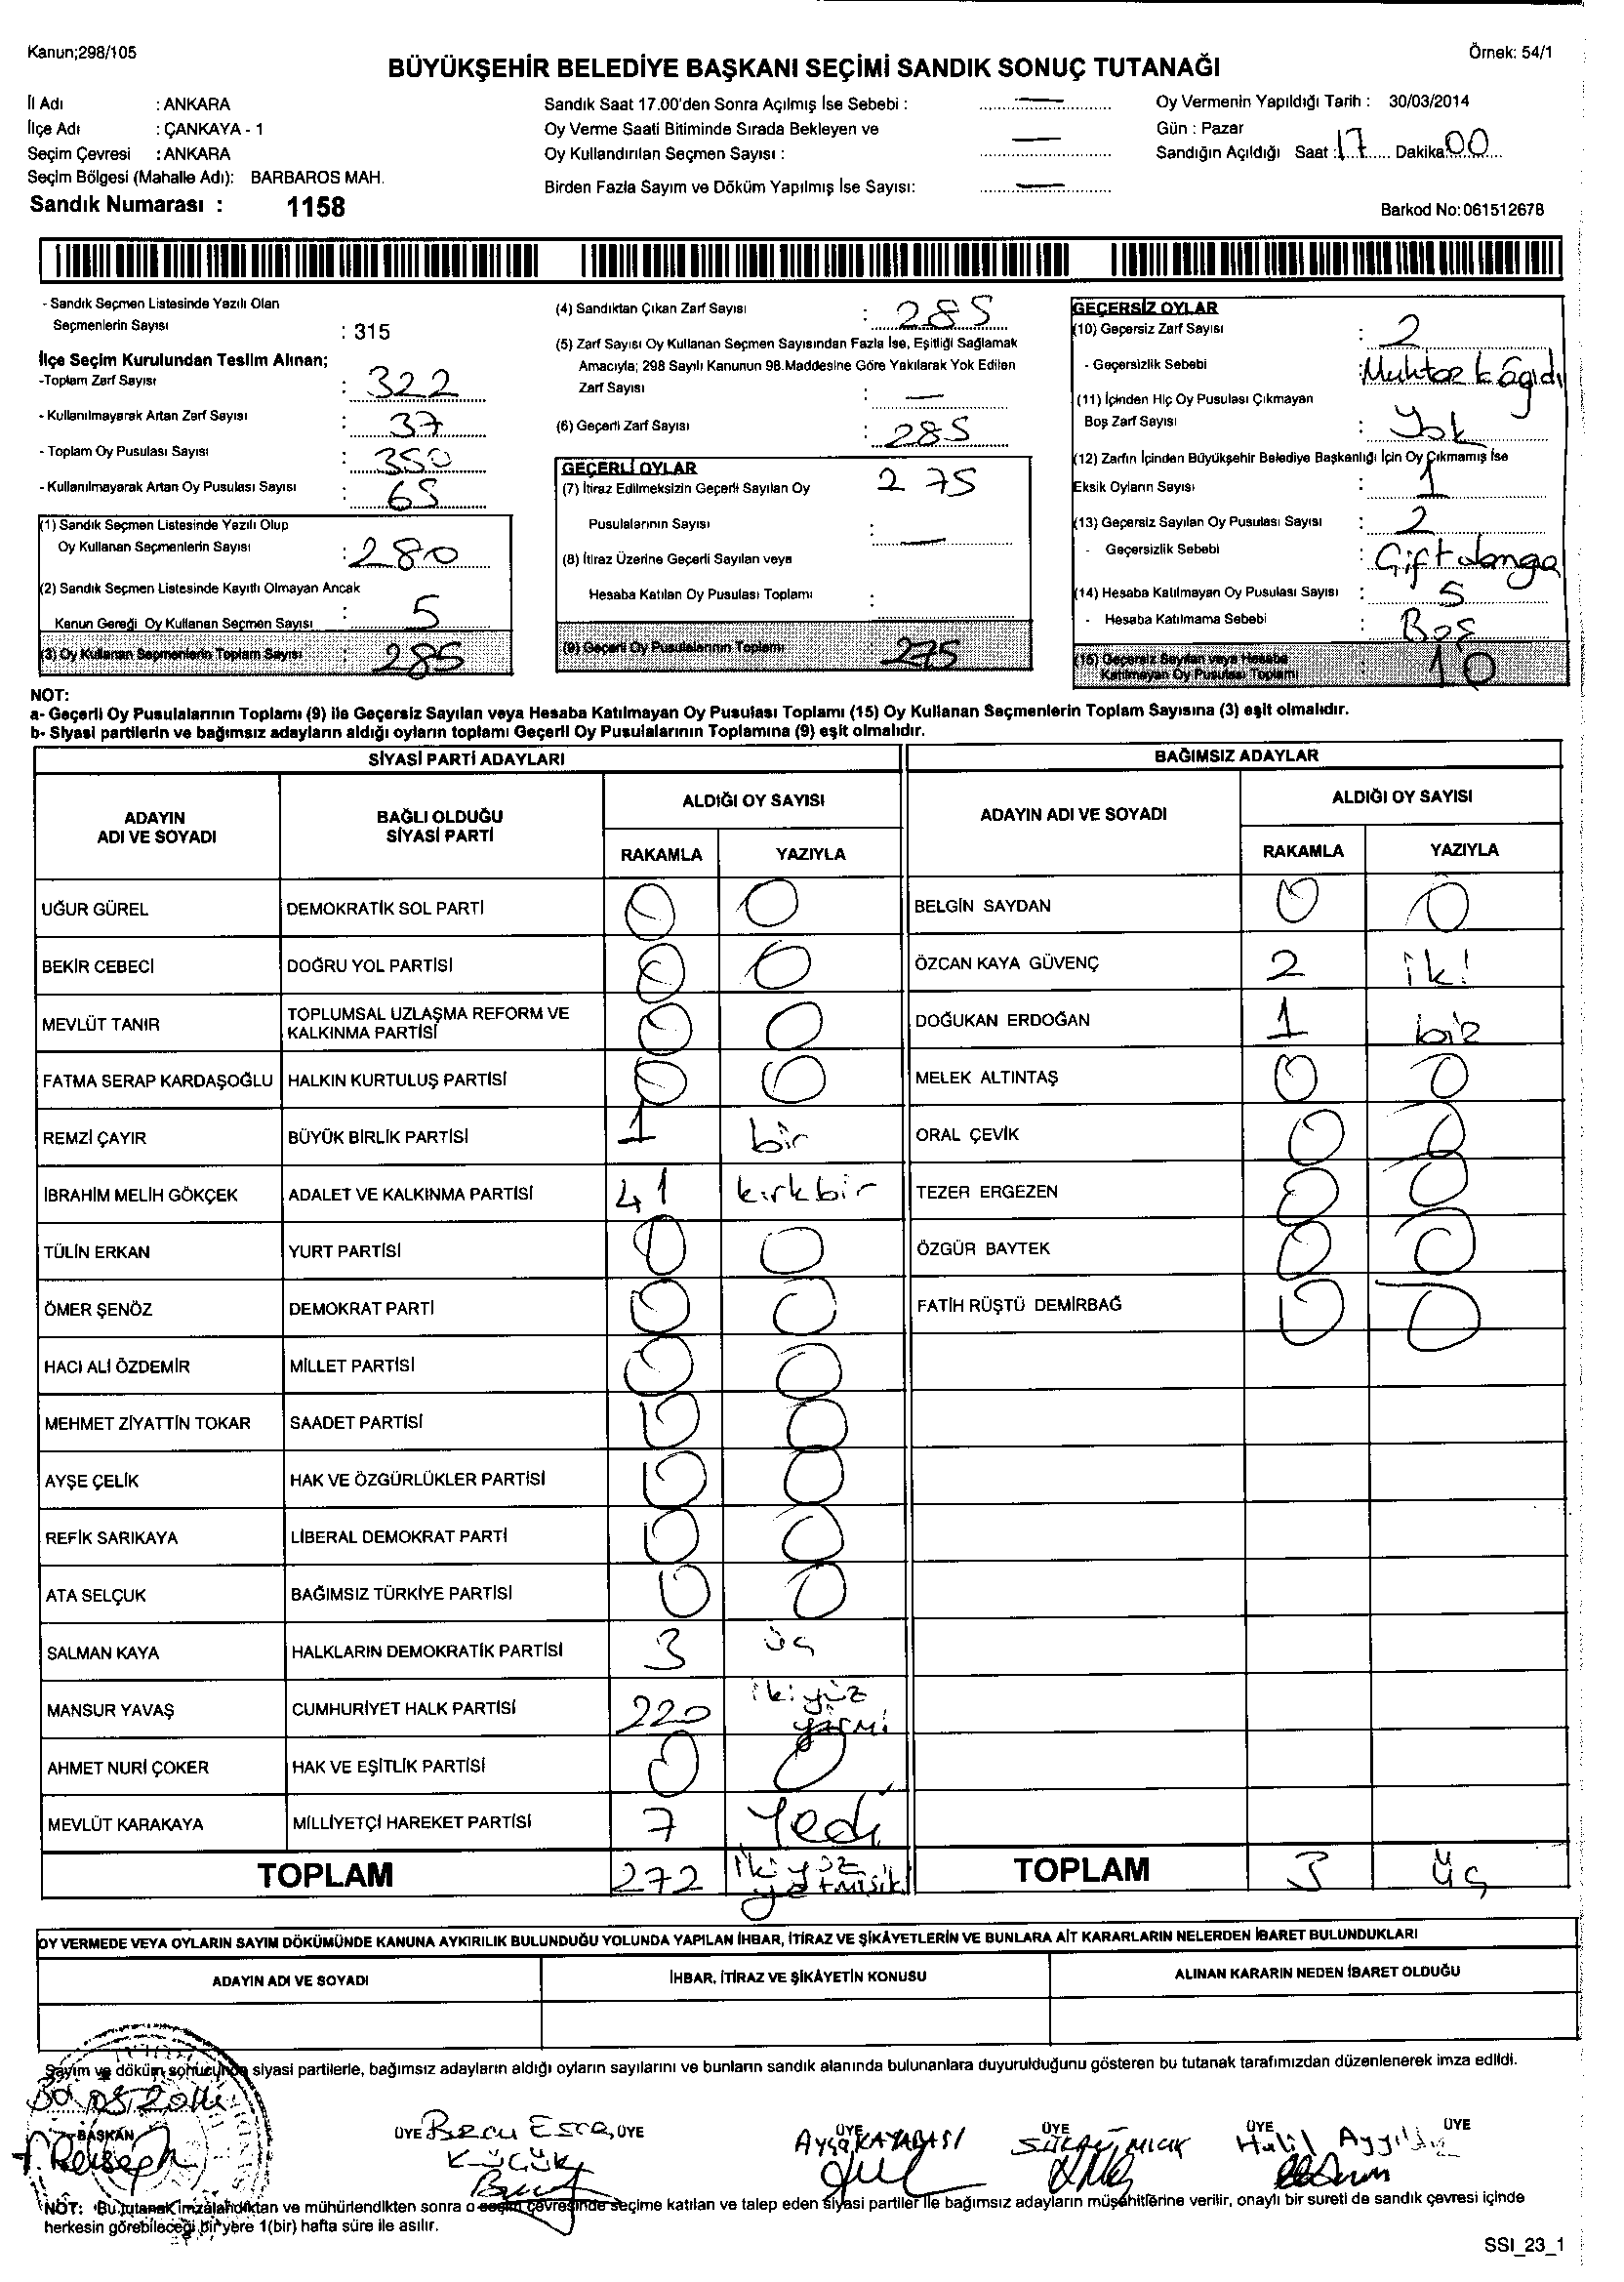 Kanun;298/105
Örnek: 54/1
BÜYÜKŞEHİR BELEDİYE BAŞKANI SEÇİMİ SANDIK SONUÇ TUTANAĞI
İl Adı : ANKARA
İlçe Adı : ÇANKAYA - 1
Seçim Çevresi : ANKARA
Seçim Bölgesi (Mahalle Adı): BARBAROS MAH.
Sandık Numarası : 1158
Sandık Saat 17.00'den Sonra Açılmış İse Sebebi : —
Oy Verme Saati Bitiminde Sırada Bekleyen ve
Oy Kullandırılan Seçmen Sayısı : —
Birden Fazla Sayım ve Döküm Yapılmış İse Sayısı: —
Oy Vermenin Yapıldığı Tarih : 30/03/2014
Gün : Pazar
Sandığın Açıldığı Saat : 17 Dakika 00
Barkod No: 061512678
- Sandık Seçmen Listesinde Yazılı Olan
Seçmenlerin Sayısı : 315
İlçe Seçim Kurulundan Teslim Alınan;
-Toplam Zarf Sayısı : 322
- Kullanılmayarak Artan Zarf Sayısı : 37
- Toplam Oy Pusulası Sayısı : 350
- Kullanılmayarak Artan Oy Pusulası Sayısı : 65
(1) Sandık Seçmen Listesinde Yazılı Olup
Oy Kullanan Seçmenlerin Sayısı : 280
(2) Sandık Seçmen Listesinde Kayıtlı Olmayan Ancak
Kanun Gereği Oy Kullanan Seçmen Sayısı : 5
(3) Oy Kullanan Seçmenlerin Toplam Sayısı : 285
(4) Sandıktan Çıkan Zarf Sayısı : 285
(5) Zarf Sayısı Oy Kullanan Seçmen Sayısından Fazla İse, Eşitliği Sağlamak
Amacıyla; 298 Sayılı Kanunun 98.Maddesine Göre Yakılarak Yok Edilen
Zarf Sayısı : —
(6) Geçerli Zarf Sayısı : 285
GEÇERLİ OYLAR
(7) İtiraz Edilmeksizin Geçerli Sayılan Oy 275
Pusulalarının Sayısı : —
(8) İtiraz Üzerine Geçerli Sayılan veya
Hesaba Katılan Oy Pusulası Toplamı :
(9) Geçerli Oy Pusulalarının Toplamı : 275
GEÇERSİZ OYLAR
(10) Geçersiz Zarf Sayısı : 2
- Geçersizlik Sebebi : Muhtar kâğıdı
(11) İçinden Hiç Oy Pusulası Çıkmayan
Boş Zarf Sayısı : Yok
(12) Zarfın İçinden Büyükşehir Belediye Başkanlığı İçin Oy Çıkmamış İse
Eksik Oyların Sayısı : 1
(13) Geçersiz Sayılan Oy Pusulası Sayısı : 2
- Geçersizlik Sebebi : Çift damga
(14) Hesaba Katılmayan Oy Pusulası Sayısı : 5
- Hesaba Katılmama Sebebi : Boş
(15) Geçersiz Sayılan veya Hesaba
Katılmayan Oy Pusulası Toplamı : 10
NOT:
a- Geçerli Oy Pusulalarının Toplamı (9) ile Geçersiz Sayılan veya Hesaba Katılmayan Oy Pusulası Toplamı (15) Oy Kullanan Seçmenlerin Toplam Sayısına (3) eşit olmalıdır.
b- Siyasi partilerin ve bağımsız adayların aldığı oyların toplamı Geçerli Oy Pusulalarının Toplamına (9) eşit olmalıdır.
SİYASİ PARTİ ADAYLARI
ADAYIN ADI VE SOYADI BAĞLI OLDUĞU SİYASİ PARTİ ALDIĞI OY SAYISI
RAKAMLA YAZIYLA
UĞUR GÜREL DEMOKRATİK SOL PARTİ 0 0
BEKİR CEBECİ DOĞRU YOL PARTİSİ 0 0
MEVLÜT TANIR TOPLUMSAL UZLAŞMA REFORM VE KALKINMA PARTİSİ 0 0
FATMA SERAP KARDAŞOĞLU HALKIN KURTULUŞ PARTİSİ 0 0
REMZİ ÇAYIR BÜYÜK BİRLİK PARTİSİ 1 bir
İBRAHİM MELİH GÖKÇEK ADALET VE KALKINMA PARTİSİ 41 kırkbir
TÜLİN ERKAN YURT PARTİSİ 0 0
ÖMER ŞENÖZ DEMOKRAT PARTİ 0 0
HACI ALİ ÖZDEMİR MİLLET PARTİSİ 0 0
MEHMET ZİYATTİN TOKAR SAADET PARTİSİ 0 0
AYŞE ÇELİK HAK VE ÖZGÜRLÜKLER PARTİSİ 0 0
REFİK SARIKAYA LİBERAL DEMOKRAT PARTİ 0 0
ATA SELÇUK BAĞIMSIZ TÜRKİYE PARTİSİ 0 0
SALMAN KAYA HALKLARIN DEMOKRATİK PARTİSİ 3 üç
MANSUR YAVAŞ CUMHURİYET HALK PARTİSİ 220 ikiyüz yirmi
AHMET NURİ ÇOKER HAK VE EŞİTLİK PARTİSİ 0 0
MEVLÜT KARAKAYA MİLLİYETÇİ HAREKET PARTİSİ 7 Yedi
TOPLAM 272 ikiyüz yetmişiki
BAĞIMSIZ ADAYLAR
ADAYIN ADI VE SOYADI ALDIĞI OY SAYISI
RAKAMLA YAZIYLA
BELGİN SAYDAN 0 0
ÖZCAN KAYA GÜVENÇ 2 iki
DOĞUKAN ERDOĞAN 1 bir
MELEK ALTINTAŞ 0 0
ORAL ÇEVİK 0 0
TEZER ERGEZEN 0 0
ÖZGÜR BAYTEK 0 0
FATİH RÜŞTÜ DEMİRBAĞ 0 0
TOPLAM 3 üç
OY VERMEDE VEYA OYLARIN SAYIM DÖKÜMÜNDE KANUNA AYKIRILIK BULUNDUĞU YOLUNDA YAPILAN İHBAR, İTİRAZ VE ŞİKÂYETLERİN VE BUNLARA AİT KARARLARIN NELERDEN İBARET BULUNDUKLARI
ADAYIN ADI VE SOYADI İHBAR, İTİRAZ VE ŞİKÂYETİN KONUSU ALINAN KARARIN NEDEN İBARET OLDUĞU
Sayım ve döküm sonucunda siyasi partilerle, bağımsız adayların aldığı oyların sayılarını ve bunların sandık alanında bulunanlara duyurulduğunu gösteren bu tutanak tarafımızdan düzenlenerek imza edildi.
BAŞKAN ÜYE ÜYE ÜYE ÜYE ÜYE ÜYE
Esra Küçük
Ayşe KAYABAŞI
Halil Ayyıldız
NOT: Bu tutanak imzalandıktan ve mühürlendikten sonra o seçim çevresinde seçime katılan ve talep eden siyasi partiler ile bağımsız adayların müşahitlerine verilir, onaylı bir sureti de sandık çevresi içinde
herkesin görebileceği bir yere 1(bir) hafta süre ile asılır.
SSI_23_1